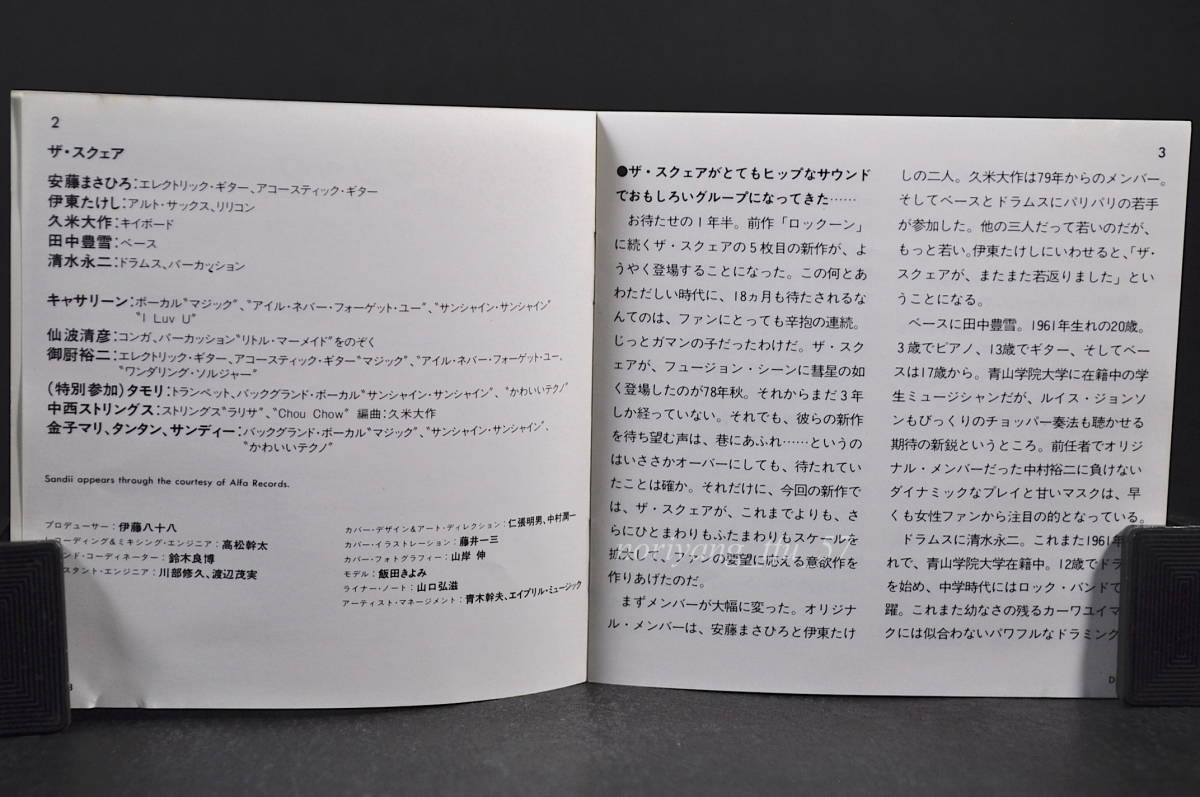 2
ザ・スクェア
安藤まさひろ：エレクトリック・ギター、アコースティック・ギター
伊東たけし：アルト・サックス、リリコン
久米大作：キイボード
田中豊雪：ベース
清水永二：ドラムス、パーカッション
キャサリーン：ボーカル“マジック”、“アイル・ネバー・フォーゲット・ユー”、“サンシャイン・サンシャイン”
“I Luv U”
仙波清彦：コンガ、パーカッション“リトル・マーメイド”をのぞく
御厨裕二：エレクトリック・ギター、アコースティック・ギター“マジック”、“アイル・ネバー・フォーゲット・ユー、
“ワンダリング・ソルジャー”
(特別参加)タモリ：トランペット、バックグランド・ボーカル“サンシャイン・サンシャイン”、“かわいいテクノ”
中西ストリングス：ストリングス“ラリサ”、“Chou Chow” 編曲：久米大作
金子マリ、タンタン、サンディー：バックグランド・ボーカル“マジック”、“サンシャイン・サンシャイン”、
“かわいいテクノ”
Sandii appears through the courtesy of Alfa Records.
プロデューサー：伊藤八十八
レコーディング&ミキシング・エンジニア：高松幹太
ンド・コーディネーター：鈴木良博
スタント・エンジニア：川部修久、渡辺茂実
カバー・デザイン&アート・ディレクション：仁張明男、中村潤一
カバー・イラストレーション：藤井一三
カバー・フォトグラフィー：山岸 伸
モデル：飯田きよみ
ライナー・ノート：山口弘滋
アーティスト・マネージメント：青木幹夫、エイプリル・ミュージック
3
●ザ・スクェアがとてもヒップなサウンド
でおもしろいグループになってきた……
お待たせの1年半。前作「ロックーン」
に続くザ・スクェアの5枚目の新作が、よ
うやく登場することになった。この何とあ
わただしい時代に、18ヵ月も待たされるな
んてのは、ファンにとっても辛抱の連続。
じっとガマンの子だったわけだ。ザ・スク
ェアが、フュージョン・シーンに彗星の如
く登場したのが78年秋。それからまだ3年
しか経っていない。それでも、彼らの新作
を待ち望む声は、巷にあふれ……というの
はいささかオーバーにしても、待たれてい
たことは確か。それだけに、今回の新作で
は、ザ・スクェアが、これまでよりも、さ
らにひとまわりもふたまわりもスケールを
拡大して、ファンの要望に応える意欲作を
作りあげたのだ。
まずメンバーが大幅に変った。オリジナ
ル・メンバーは、安藤まさひろと伊東たけ
しの二人。久米大作は79年からのメンバー。
そしてベースとドラムスにバリバリの若手
が参加した。他の三人だって若いのだが、
もっと若い。伊東たけしにいわせると、「ザ・
スクェアが、またまた若返りました」とい
うことになる。
ベースに田中豊雪。1961年生れの20歳。
3歳でピアノ、13歳でギター、そしてベー
スは17歳から。青山学院大学に在籍中の学
生ミュージシャンだが、ルイス・ジョンソ
ンもびっくりのチョッパー奏法も聴かせる
期待の新鋭というところ。前任者でオリジ
ナル・メンバーだった中村裕二に負けない
ダイナミックなプレイと甘いマスクは、早
くも女性ファンから注目の的となっている。
ドラムスに清水永二。これまた1961年
れで、青山学院大学在籍中。12歳でドラ
を始め、中学時代にはロック・バンドで
躍。これまた幼なさの残るカーワユイマ
クには似合わないパワフルなドラミング
noriyang_fff_57